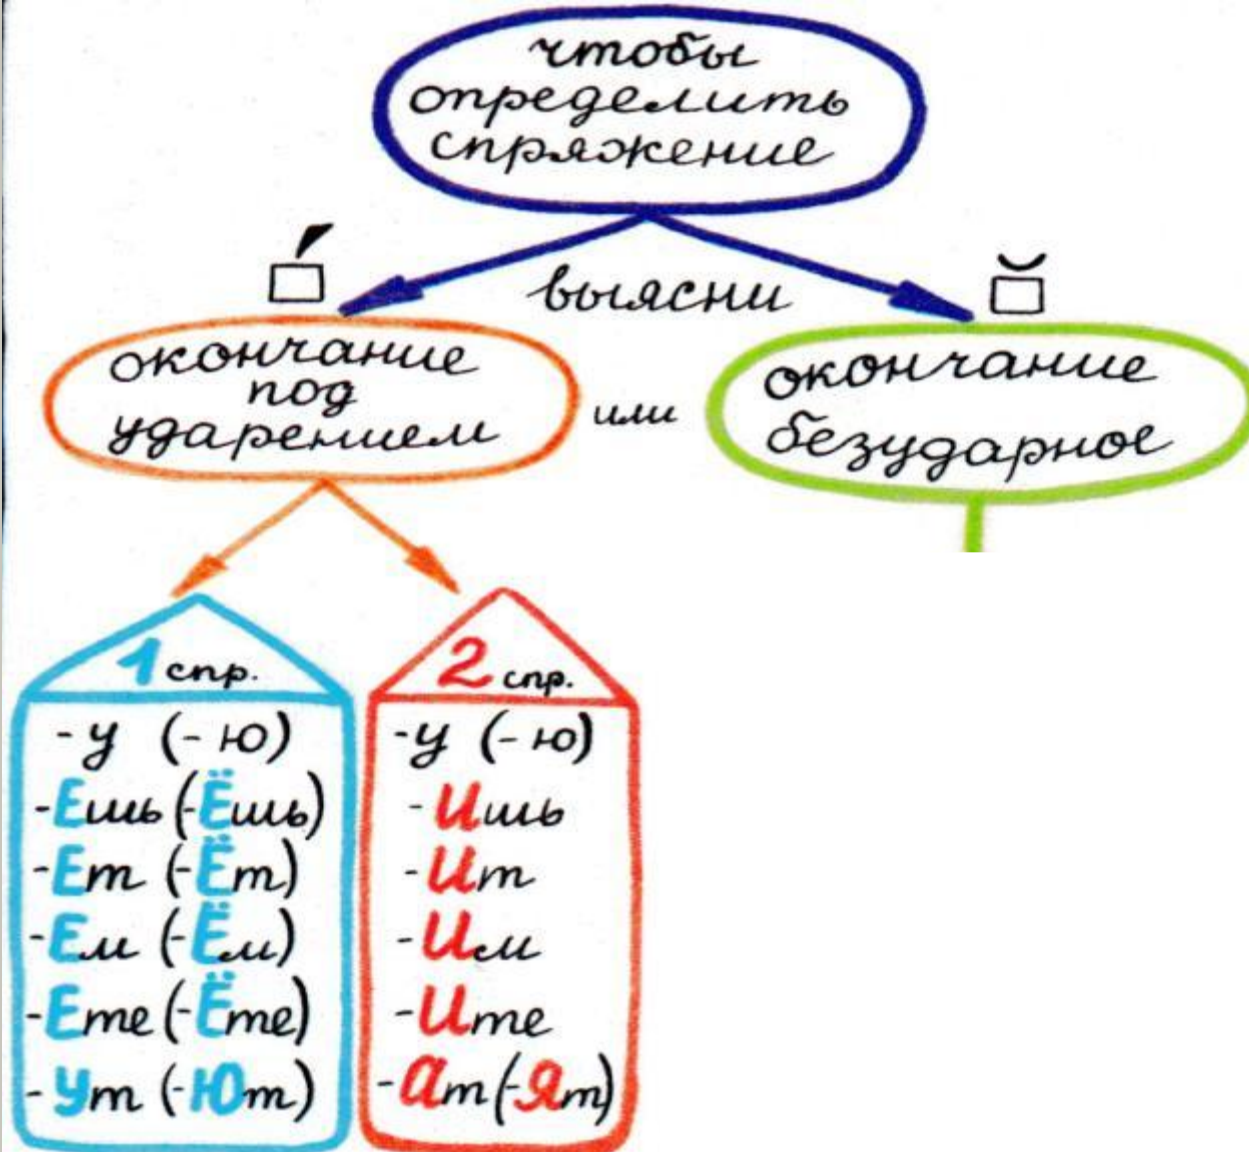 чтобы
определить
спряжение
выясни
окончание
под
ударением
или
окончание
безударное
1 спр.
-у (-ю)
-Ешь (-Ёшь)
-Ет (-Ёт)
-Ем (-Ём)
-Ете (-Ёте)
-Ут (-Ют)
2 спр.
-у (-ю)
-Ишь
-Ит
-Им
-Ите
-Ат (-Ят)